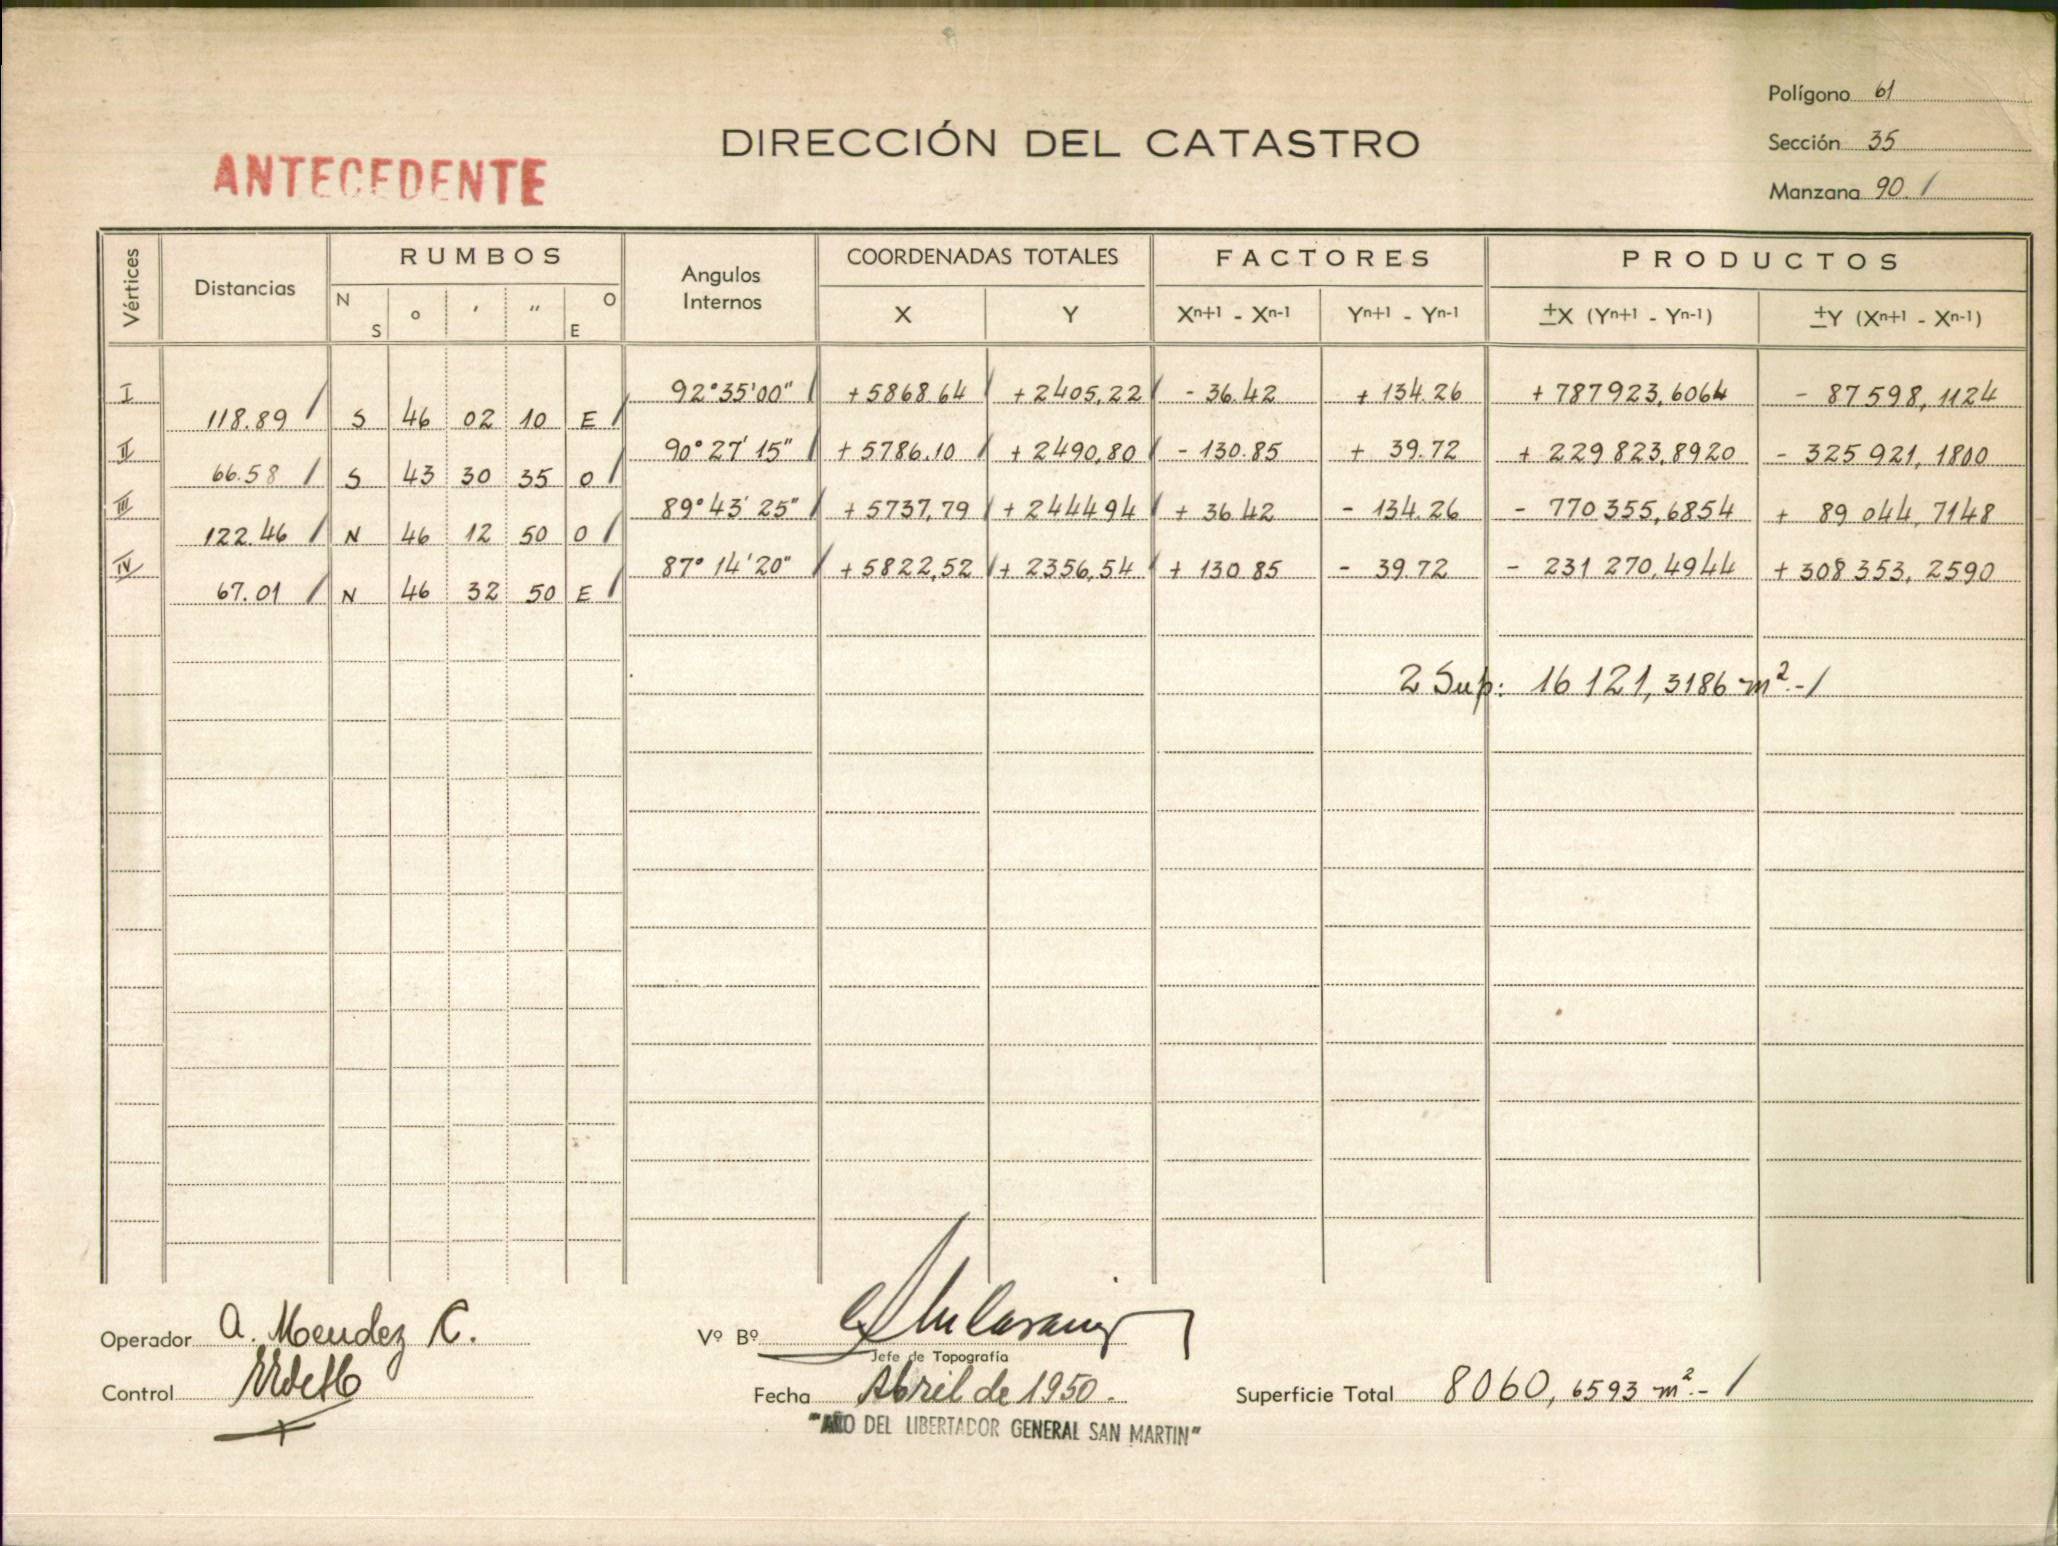 Polígono 61
DIRECCIÓN DEL CATASTRO
Sección 35
ANTECEDENTE
Manzana 90. /
Vértices Distancias RUMBOS Angulos Internos COORDENADAS TOTALES FACTORES PRODUCTOS
N S ° ' " O E X Y Xn+1 - Xn-1 Yn+1 - Yn-1 ±X (Yn+1 - Yn-1) ±Y (Xn+1 - Xn-1)
I 92°35'00" / +5868.64 / +2405,22 / - 36.42 + 134.26 +787923,6064 - 87598,1124
118.89 / S 46 02 10 E /
II 90°27'15" / +5786.10 / +2490,80 / - 130.85 + 39.72 + 229823,8920 - 325921,1800
66.58 / S 43 30 35 O /
III 89°43'25" / +5737,79 / +244494 / + 36.42 - 134.26 - 770355,6854 + 89044,7148
122.46 / N 46 12 50 O /
IV 87°14'20" / +5822,52 / + 2356,54 / + 130.85 - 39.72 - 231270,4944 +308353,2590
67.01 / N 46 32 50 E /
2 Sup: 16121,3186 m².- /
Operador A. Mendez C.
Vº Bº
Jefe de Topografía
Control
Fecha Abril de 1950.
Superficie Total 8060,6593 m².- /
"AÑO DEL LIBERTADOR GENERAL SAN MARTIN"